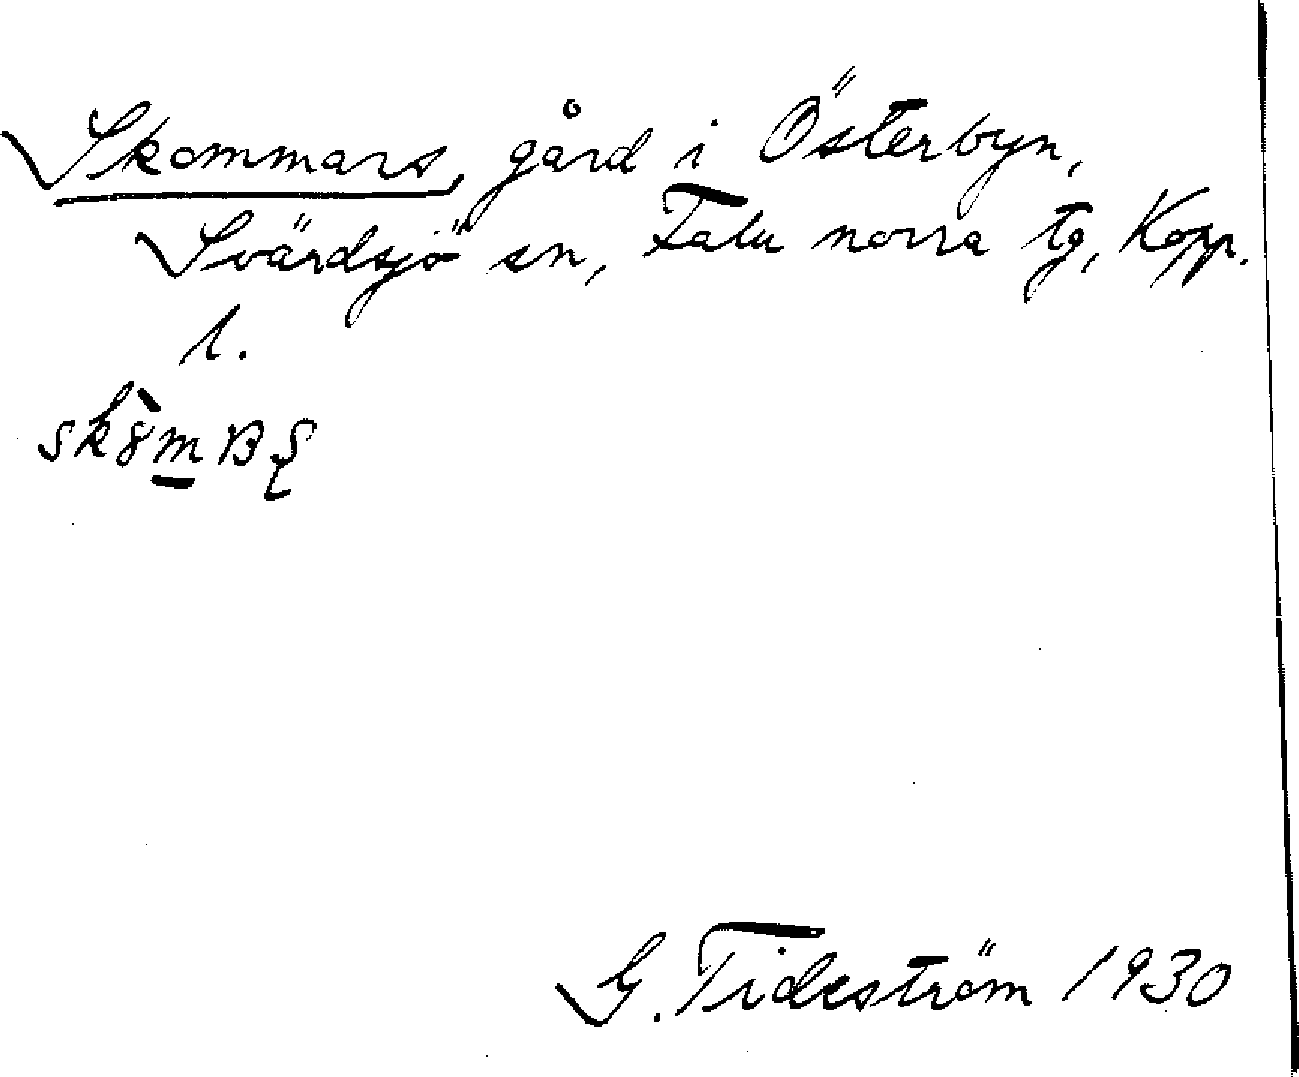 Skommars, gård i Österbyn,
Svärdsjö sn, Falu norra tg, Kopp.
l.
G. Tideström 1930